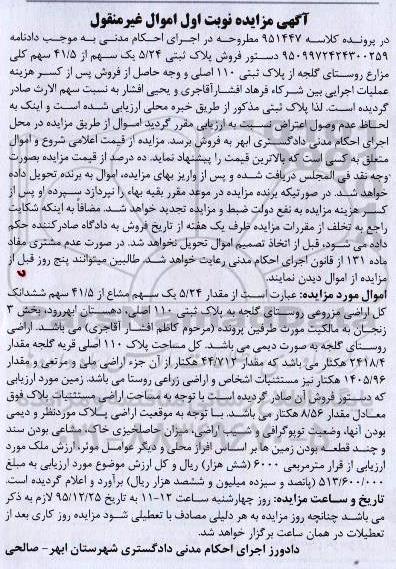 آگهی مزایده نوبت اول اموال غیرمنقول
در پرونده کلاسه ۹۵۱۴۴۷ مطروحه در اجرای احکام مدنی به موجب دادنامه
۹۵۰۹۹۷۲۴۲۴۳۰۰۲۵۹ دستور فروش پلاک ثبتی ۵/۲۴ یک سهم از ۴۱/۵ سهم کلی
مزارع روستای گلجه از پلاک ثبتی ۱۱۰ اصلی و وجه حاصل از فروش پس از کسر هزینه
عملیات اجرایی بین شرکاء فرهاد افشارآقاجری و یحیی افشار به نسبت سهم الارث صادر
گردیده است. لذا پلاک ثبتی مذکور از طریق خبره محلی ارزیابی شده است و اینک به
لحاظ عدم وصول اعتراض نسبت به ارزیابی مقرر گردید اموال از طریق مزایده در محل
اجرای احکام مدنی دادگستری ابهر به فروش برسد. مزایده از قیمت اعلامی شروع و اموال
متعلق به کسی است که بالاترین قیمت را پیشنهاد نماید. ده درصد از قیمت مزایده بصورت
وجه نقد فی المجلس دریافت شده و پس از واریز بهای مزایده، اموال به برنده تحویل داده
خواهد شد. در صورتیکه برنده مزایده در موعد مقرر بقیه بهاء را نپردازد سپرده او پس از
کسر هزینه مزایده به نفع دولت ضبط و مزایده تجدید خواهد شد. مضافاً به اینکه شکایت
راجع به تخلف از مقررات مزایده ظرف یک هفته از تاریخ فروش به دادگاه صادرکننده حکم
داده می شود، قبل از اتخاذ تصمیم اموال تحویل نخواهد شد. در صورت عدم مشتری مفاد
ماده ۱۳۱ از قانون اجرای احکام مدنی رعایت خواهد شد. طالبین میتوانند پنج روز قبل از
مزایده از اموال دیدن نمایند.
اموال مورد مزایده: عبارت است از مقدار ۵/۲۴ یک سهم مشاع از ۴۱/۵ سهم ششدانگ
کل اراضی مزروعی روستای گلجه به پلاک ثبتی ۱۱۰ اصلی، دهستان ابهررود، بخش ۳
زنجان به مالکیت مورث طرفین پرونده (مرحوم کاظم افشار آقاجری) می باشد. اراضی
روستای گلجه به صورت دیمی می باشد. کل مساحت پلاک ۱۱۰ اصلی قریه گلجه مقدار
۲۴۱۸/۴ هکتار می باشد که مقدار ۷۱۲/۴۴ هکتار از آن جزء اراضی ملی و مرتعی و مقدار
۱۴۰۵/۹۶ هکتار نیز مستثنیات اشخاص و اراضی زراعی روستا می باشد. زمین مورد ارزیابی
که دستور فروش آن صادر گردیده است با توجه به مساحت اراضی مستثنیات پلاک فوق
معادل مقدار ۸/۵۶ هکتار می باشد. با توجه به موقعیت اراضی پلاک موردنظر و دیمی
بودن آنها، وضعیت توپوگرافی و شیب اراضی، میزان حاصلخیزی خاک، مشاعی بودن سند
و چند قطعه بودن زمین ها بر اساس افراز محلی و دیگر عوامل موثر، ارزش ملک مورد
ارزیابی از قرار مترمربعی ۶۰۰۰ (شش هزار) ریال و کل ارزش موضوع مورد ارزیابی به مبلغ
۵۱۳/۶۰۰/۰۰۰ (پانصد و سیزده میلیون و ششصد هزار ریال) برآورد و اعلام گردیده است.
تاریخ و ساعت مزایده: روز چهارشنبه ساعت ۱۲-۱۱ به تاریخ ۹۵/۱۲/۲۵ لازم به ذکر
می باشد چنانچه روز مزایده به هر دلیلی مصادف با تعطیلی شود مزایده روز کاری بعد از
تعطیلات در همان ساعت برگزار خواهد شد.
دادورز اجرای احکام مدنی دادگستری شهرستان ابهر- صالحی